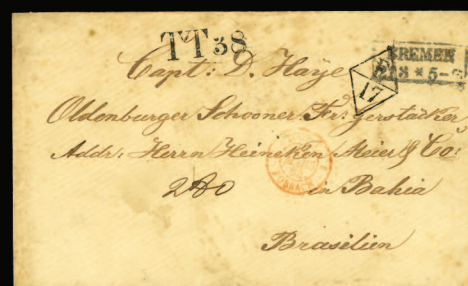 TT 38
BREMEN
3 * 5-6
17
Capt: D. Haye
Oldenburger Schooner Fr. Gerstäcker
Addr: Herrn Heineken Meier & Co:
280 in Bahia
Brasilien